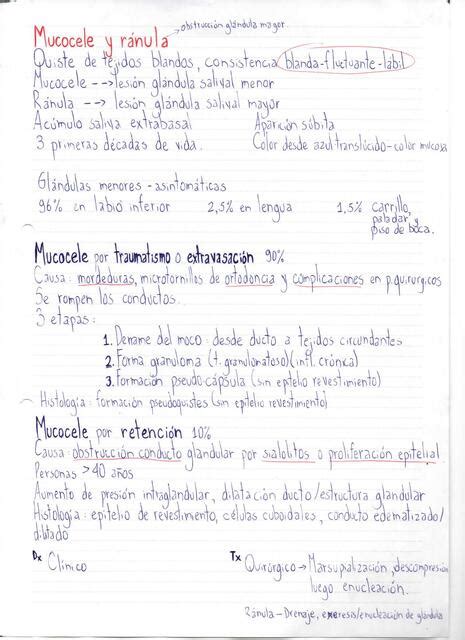 Mucocele y ránula → obstrucción glándula mayor.
Quiste de tejidos blandos, consistencia blanda-fluctuante-lábil
Mucocele --> lesión glándula salival menor
Ránula --> lesión glándula salival mayor
Acúmulo saliva extrabasal Aparición súbita
3 primeras décadas de vida. Color desde azul translúcido-color mucosa
Glándulas menores - asintomáticas
96% en labio inferior 2,5% en lengua 1,5% carrillo,
paladar, y
piso de boca.
Mucocele por traumatismo o extravasación 90%
Causa: mordeduras, microtornillos de ortodoncia y complicaciones en p.quirurgicos
Se rompen los conductos..
3 etapas:
1. Derrame del moco: desde ducto a tejidos circundantes
2. Forma granuloma (t. granulomatoso)(infl. crónica)
3. Formación pseudo cápsula (sin eptelio revestimiento)
Histología: formación pseudoquistes (sin epitelio revestimiento)
Mucocele por retención 10%
Causa: obstrucción conducto glandular por sialolitos o proliferación epitelial
Personas >40 años
Aumento de presión intraglandular, dilatación ducto/estructura glandular
Histología: epitelio de revestimiento, células cuboidales, conducto edematizado/
dilatado
Dx Clínico Tx Quirúrgico → Marsupialización, descompresión
luego enucleación.
Ránula - Drenaje, exeresis/enucleación de glándula